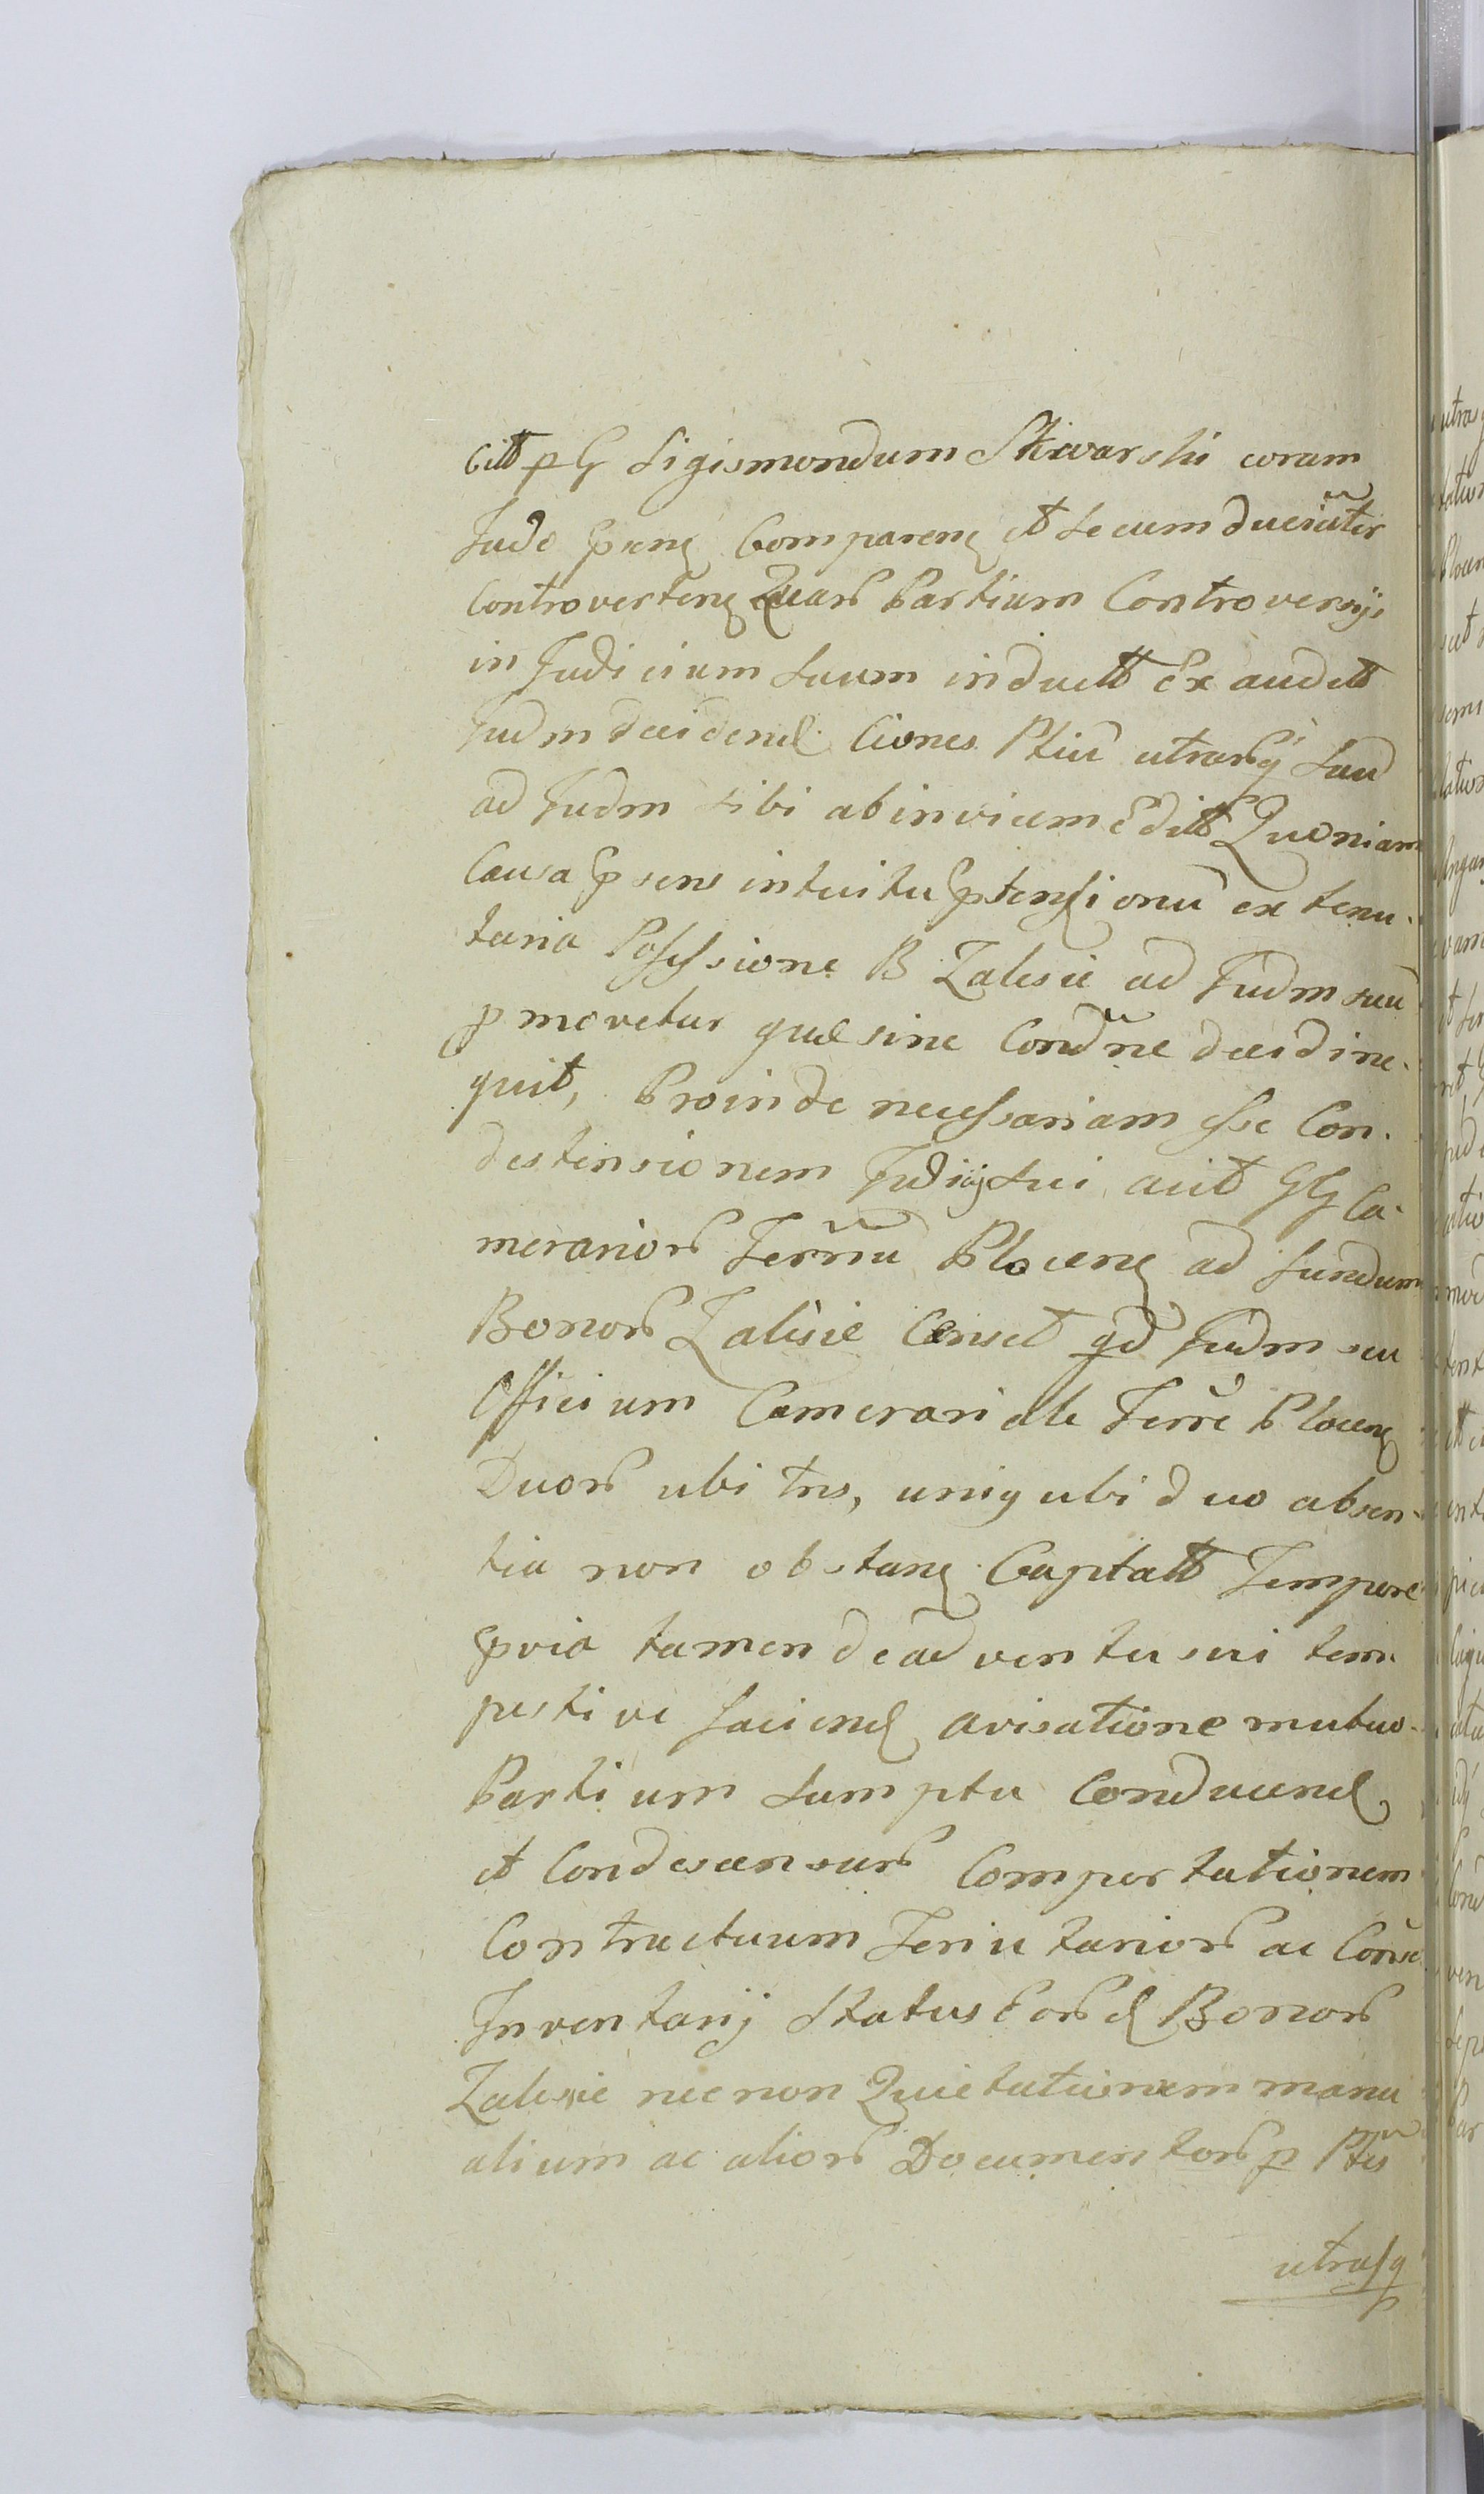 citt p G Sigismundum Skwarski coram
Judo pñng Compareng et secum duciãter
Controverteng Quarũ Partium Controversijs
in Judicium suum inductt Ex audett
Judm decidend Ciones Ptiũ utrarq̃ Sua
ad Judm sibi ab invicem Editt Quoniam
Causa psens intuitu ptensionũ ex tenu-
taria Possessione B Zalesie ad Judm suũ
p movetur quæ sine Condñe decidi ne-
quit, Proinde necessariam esse Con-
destensionem Judiij sui, ait GG Ca-
merariorũ Terrñũ Ploceng ad fundum
Bonorũ Zalesie Censet qd Judm seu
Officium Camerariale Terrẽ Ploceng
Duorũ ubi tris, uniq ubi duo absen-
tia non obstang Captatt Tempore
pvia tamen de adventu sui tem-
pestive faciend avisatione mutuo-
Partium sumptu Conducend
et Condescensurũ Comportationem
Contractuum Tenutariorũ ac Conse
Inventarij Status Eorũd Bonorũ
Zalesie nec non Quietationem manu
alium ac aliorũ Documentorũ p Ptes
utrasq